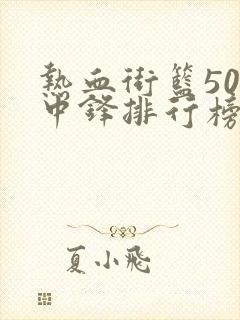 熱血街籃50
中鋒排行榜
夏小飛